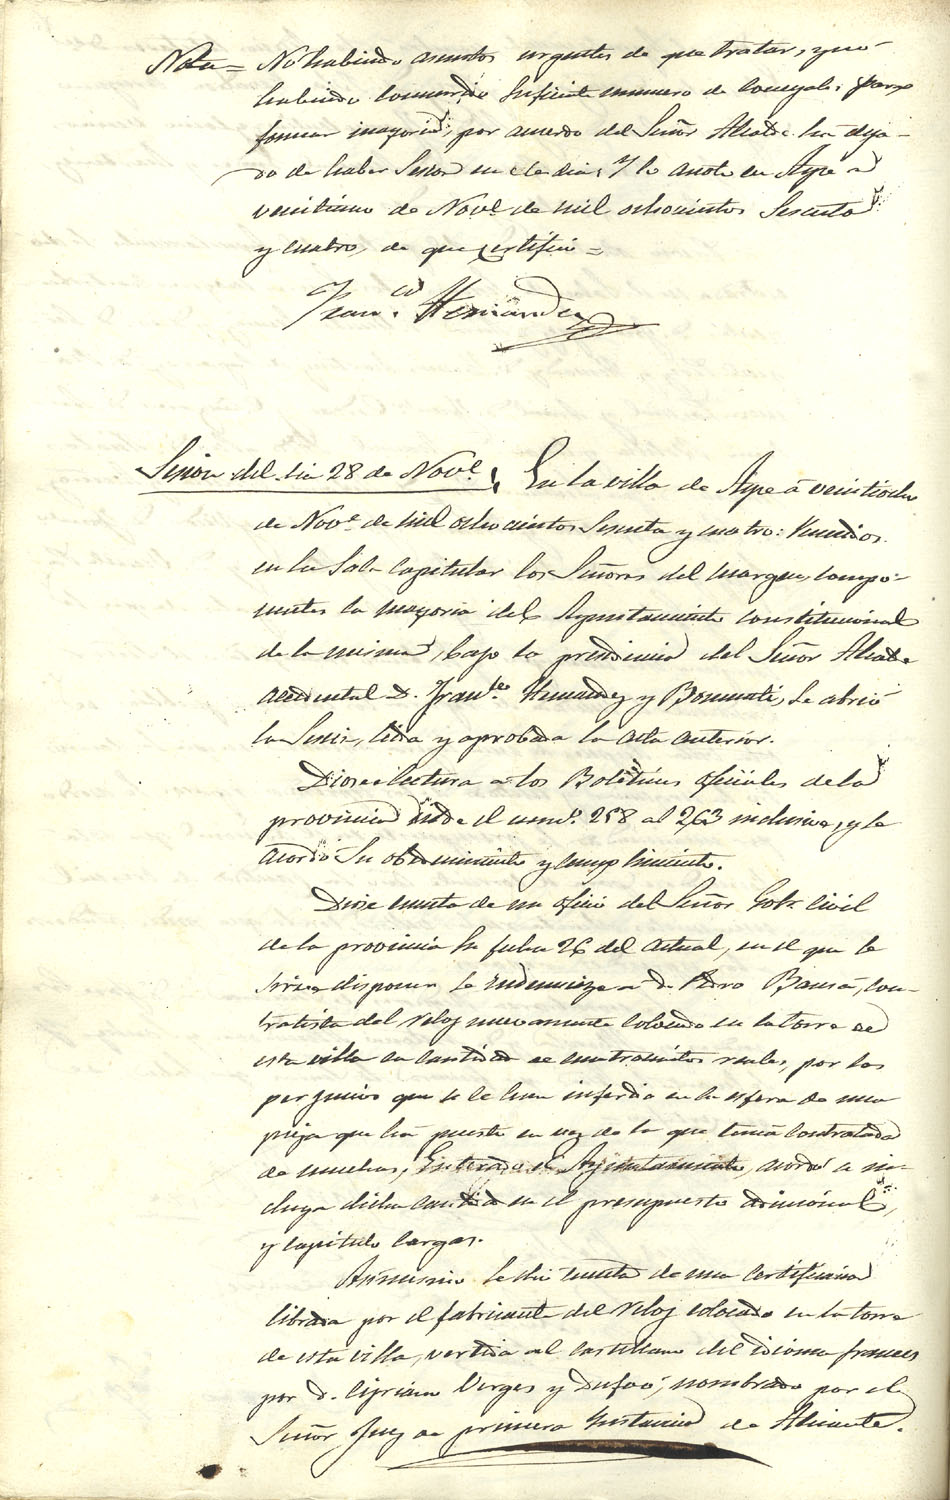 Nota = No habiendo asuntos urgentes de que tratar, y no
habiendo concurrido suficiente numero de concejales para
formar mayoria, por acuerdo del Señor Alcalde ha deja-
do de haber Sesion en este dia, Y lo anoto en Aspe a
veintiuno de Nove. de mil ochocientos Sesenta
y cuatro, de que certifico =
Franco. Hernandez
Sesion del dia 28 de Nove. En la villa de Aspe á veintiocho
de Nove. de mil ochocientos Sesenta y cuatro: Reunidos
en la Sala Capitular los Señores del margen, compo-
nentes la mayoria del Ayuntamiento constitucional
de la misma, bajo la presidencia del Señor Alcalde
accidental D. Franco. Hernandez y Bonmati, Se abrió
la Sesion, leida y aprobada la acta anterior.
Diose lectura a los Boletines oficiales de la
provincia desde el numo. 258 al 263 inclusive, y se
acordó Su obedecimiento y cumplimiento.
Diose cuenta de un oficio del Señor Gobr. Civil
de la provincia Su fecha 26 del actual, en el que se
Sirve disponer Se indemnize a D. Pedro Bausá, con-
tratista del Reloj nuevamente colocado en la torre de
esta villa en cantidad de cuatrocientos reales, por los
perjuicios que se le han inferido en la esfera de una
pieza que ha puesto en vez de la que tenia contratada
de muchas, Enterado el Ayuntamiento, acordó se in-
cluya dicha cantidad en el presupuesto adicional,
y capitulo cargas.
Asimismo Se dió cuenta de una certificacion
librada por el fabricante del Reloj colocado en la torre
de esta villa, vertida al castellano del idioma frances
por D. Cipriano Verges y Dufoó, nombrado por el
Señor Juez de primera Instancia de Alicante.